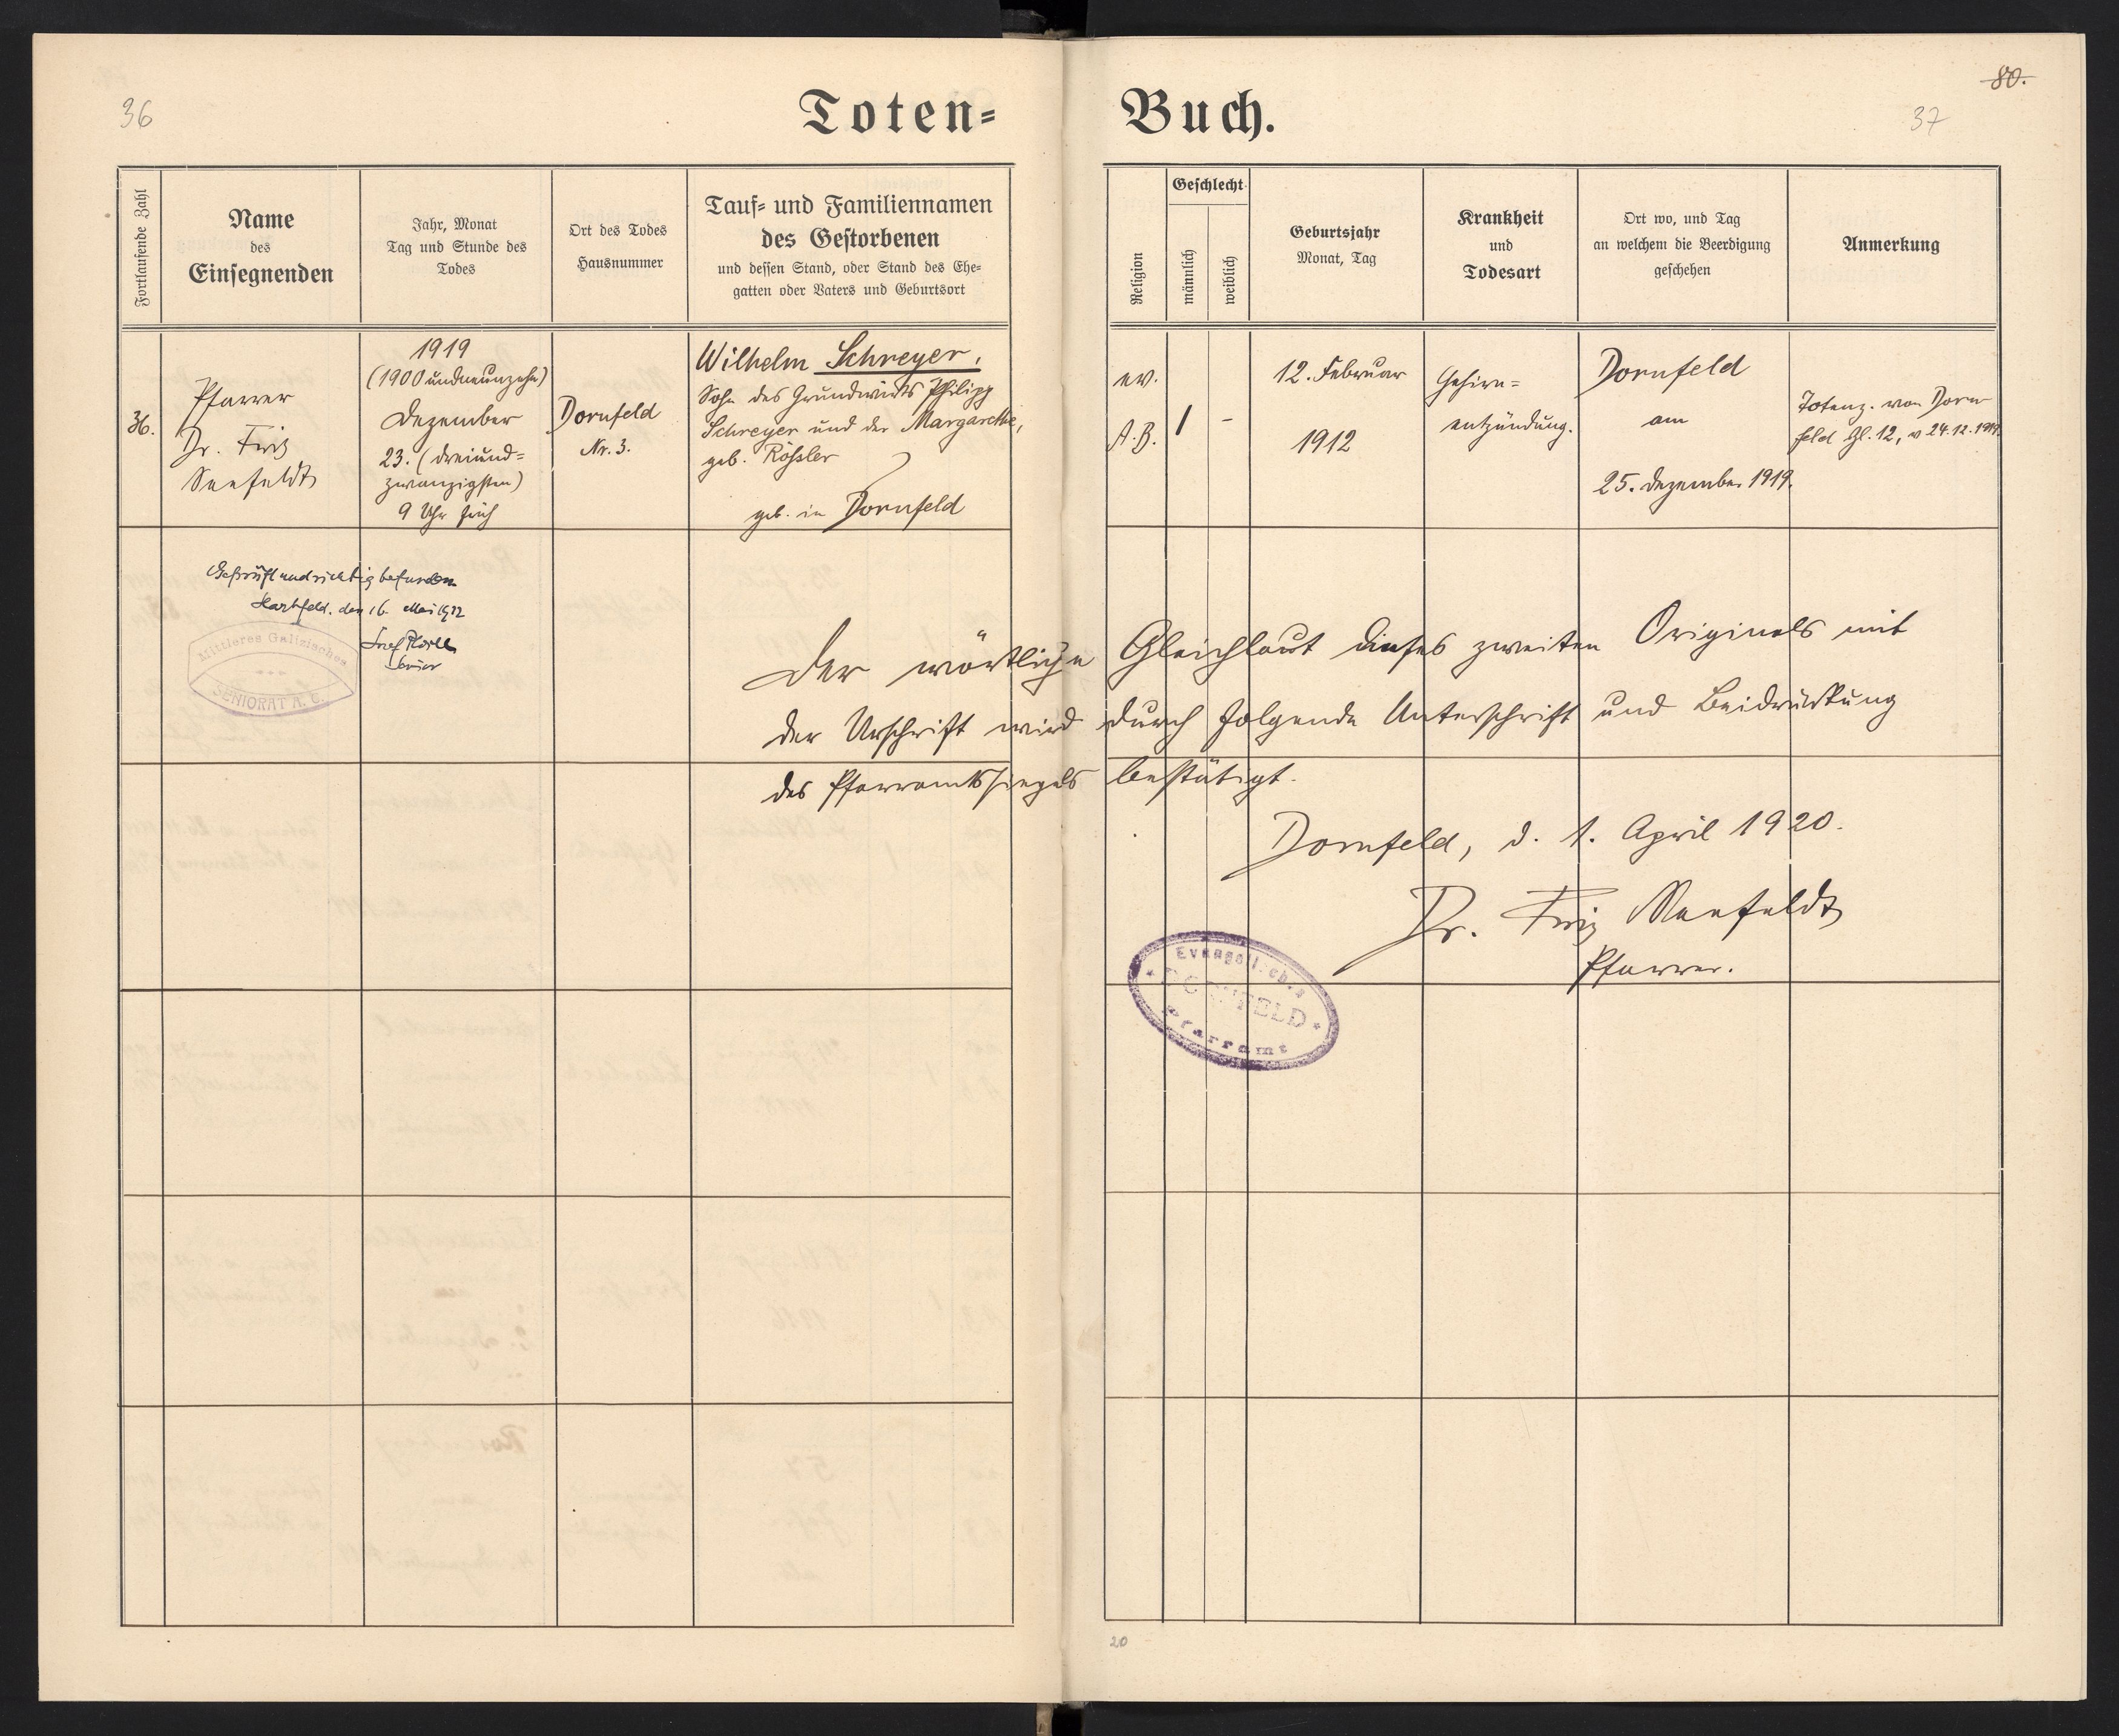 36
Toten=
Buch.
80.
37
Fortlaufende Zahl
Name
des
Einsegnenden
Jahr, Monat
Tag und Stunde des
Todes
Ort des Todes
Hausnummer
Tauf= und Familiennamen
des Gestorbenen
und dessen Stand, oder Stand des Ehe=
gatten oder Vaters und Geburtsort
Religion
Geschlecht
männlich
weiblich
Geburtsjahr
Monat, Tag
Krankheit
und
Todesart
Ort wo, und Tag
an welchem die Beerdigung
geschehen
Anmerkung
36.
Pfarrer
Dr. Friz
Seefeldt
1919
(1900 undneunzehn)
Dezember
23. (dreiund=
zwanzigsten)
9 Uhr früh
Dornfeld
Nr. 3.
Wilhelm Schreyer,
Sohn des Grundwirts Philipp
Schreyer und der Margarethe,
geb. Rößler
geb. in Dornfeld
ev.
A.B.
1
-
12. Februar
1912
Gehirn=
entzündung.
Dornfeld
am
25. Dezember 1919.
Totenz. von Dorn-
feld Gl. 12, v 24.12.1919.
Geprüft und richtig befunden
Hartfeld, den 16. Mai 1922
Senior
Mittleres Galizisches
SENIORAT A. C.
Der wörtliche Gleichlaut dieses zweiten Originals mit
der Urschrift wird durch folgende Unterschrift und Beidrückung
des Pfarramtssiegels bestätigt.
Dornfeld, d. 1. April 1920.
Dr. Friz Seefeldt
Pfarrer.
Evangelisches
DORNFELD
Pfarramt
20